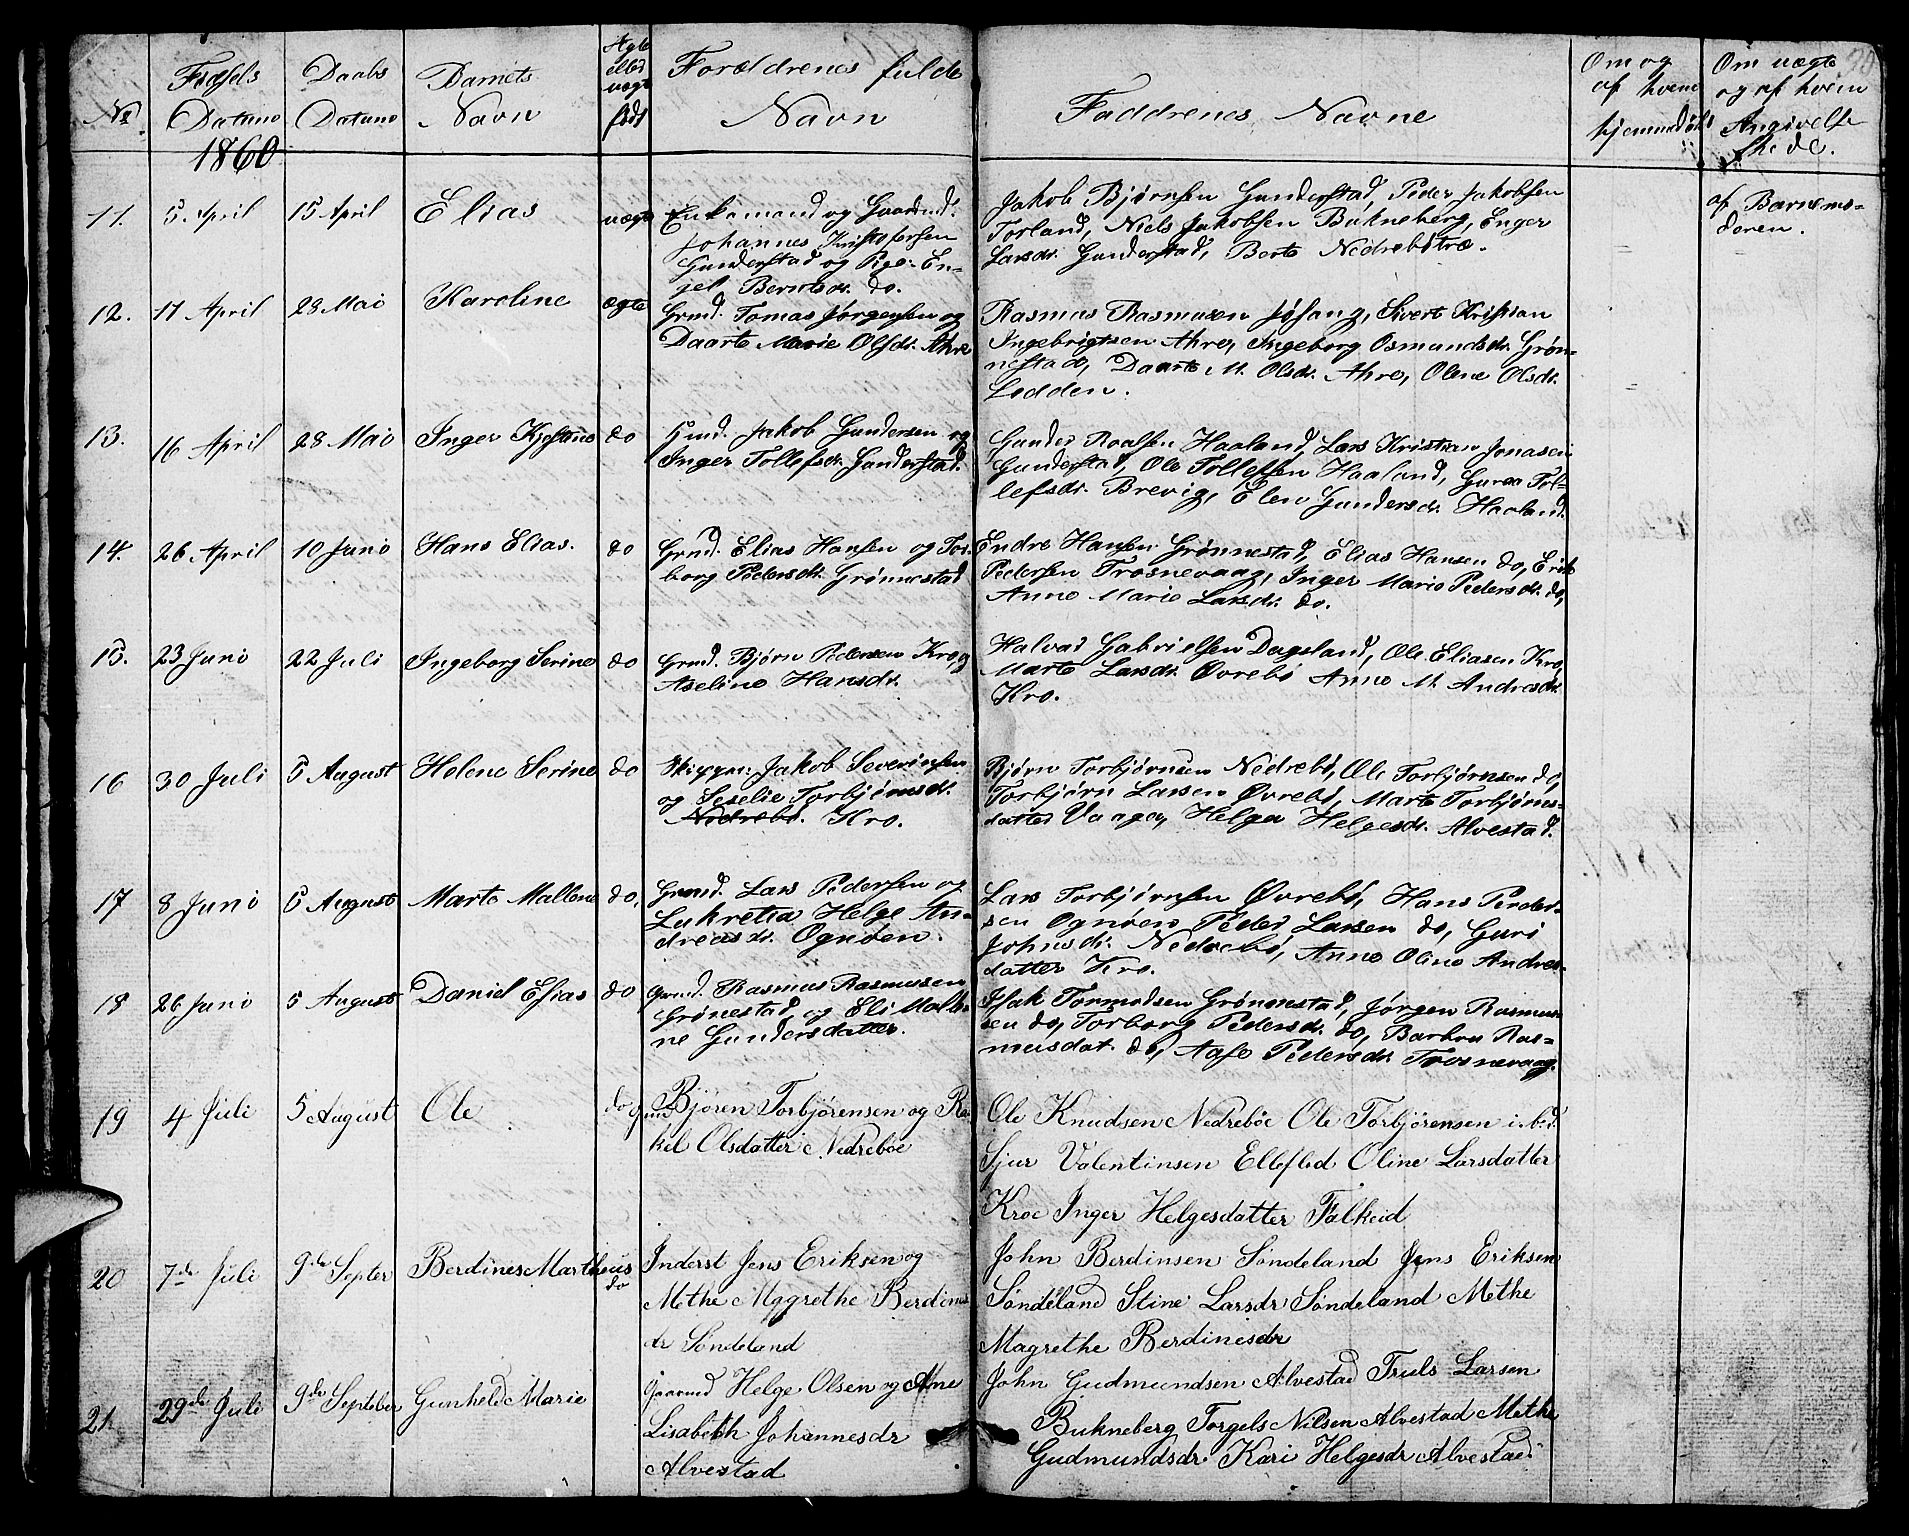 No. Fødsels Datum 1860 Daabs Datum Barnets Navn Ægte eller uægte født Forældrenes fulde Navn Faddrenes Navne Om og af hvem hjemmedøbt Om uægte og af hvem Angivelse skede.
11. 5 April 15 April Elias uægte Enkemand og Gaardmd.
Johannes Kristofersen
Gunderstad og Pige: En-
jel Berntsdr. do.
Jakob Bjørnsen Gunderstad, Peder Jakobsen
Torland, Niels Jakobsen Bukneberg, Enger
Larsdr. Gunderstad, Berte Nedrebötræ.
af Barnemo-
deren.
12. 17 April 28 Mai Karoline ægte Grmd. Tomas Jørgensen og
Daarte Marie Olsdr. Ahre
Rasmus Rasmusen Jøsang, Sivert Kristian
Ingebrigtsen Ahre, Ingeborg Osmundsdr. Grøn-
nestad, Daarte M. Olsdr. Ahre, Olene Olsdr.
Lodden.
13. 16 April 28 Mai Inger Kjestine do Grmd. Jakob Gundersen og
Inger Tollefsdr. Gunderstad.
Gunder Roalsen Haaland, Lars Kristian Jonasen
Gunderstad, Ole Tollefsen Haaland, Guroa Tol-
lefsdr. Brevig, Elen Gundersdr. Haaland.
14. 26 April 10 Juni Hans Elias. do Grmd. Elias Hansen og Tor-
borg Pedersdr. Grønnestad
Endre Hansen Grønnestad, Elias Hansen do, Erik
Pedersen Trosnevaag, Inger Marie Pedersdr. do,
Anne Marie Larsdr. do.
15. 23 Juni 22 Juli Ingeborg Serine do Grmd. Bjørn Pedersen Kro og
Aseline Hansdr.
Halvad Gabrielsen Dagsland, Ole Eliasen Kro,
Marte Larsdr. Øvrebö Anne M. Andresdr.
Kro.
16 30 Juli 5 August Helene Serine do Skipper: Jakob Severinsen
og Seselie Torbjørnsdr.
Nedrebö. Kro.
Bjørn Torbjørnsen Nedrebö, Ole Torbjørnsen do,
Torbjørn Larsen Øvrebö, Marte Torbjørns-
datter Vaaga, Helga Helgesdr. Alvestad.
17 8 Juni 5 August Marte Mallene do, Grmd. Lars Pedersen og
Lukretia Helge An-
dreasdr. Ognøen.
Lars Torbjørnsen Øvrebö, Hans Peder-
sen Ognøen Peder Larsen do, Guri
Johnsdr. Nedrebö, Anne Oline Andres-
datter Kro.
18 26 Juni 5 August Daniel Esias do Grmd. Rasmus Rasmusen
Grønestad og Eli Malle-
ne Gundersdatter.
Isak Tormodsen Grønnestad, Jørgen Rasmu-
sen do, Torborg Pedersdr. do, Barbra Ras-
musdat. do, Aase Pedersdr. Trosnevaag.
19 4 Juli 5 August Ole do Grmd Björen Torbjörensen og Ra-
kel Olsdatter Nedreböe
Ole Knudsen Nedreböe Ole Torbjörensen ibd.
Sjur Valentinsen Elleflod Oline Larsdatter
Kroe Inger Helgesdatter Falkeid
20 7de Juli 9de Septer Berdines Martheus do Inderst Jens Eriksen og
Methe Maggrethe Berdines
dr Söndeland
John Berdinsen Söndeland Jens Eriksen
Söndeland Stine Larsdr Söndeland Methe
Magrethe Berdinesdr
21. 29de Juli 9de September Gunheld Marie Gaarmd Helge Olsen og Ane
Lisabeth Johannesdr
Alvestad
John Gudmundsen Alvestad Truls Larsen
Bukneberg Torgels Nilsen Alvestad Methe
Gudmundsdr. Kari Helgesdr Alvestad